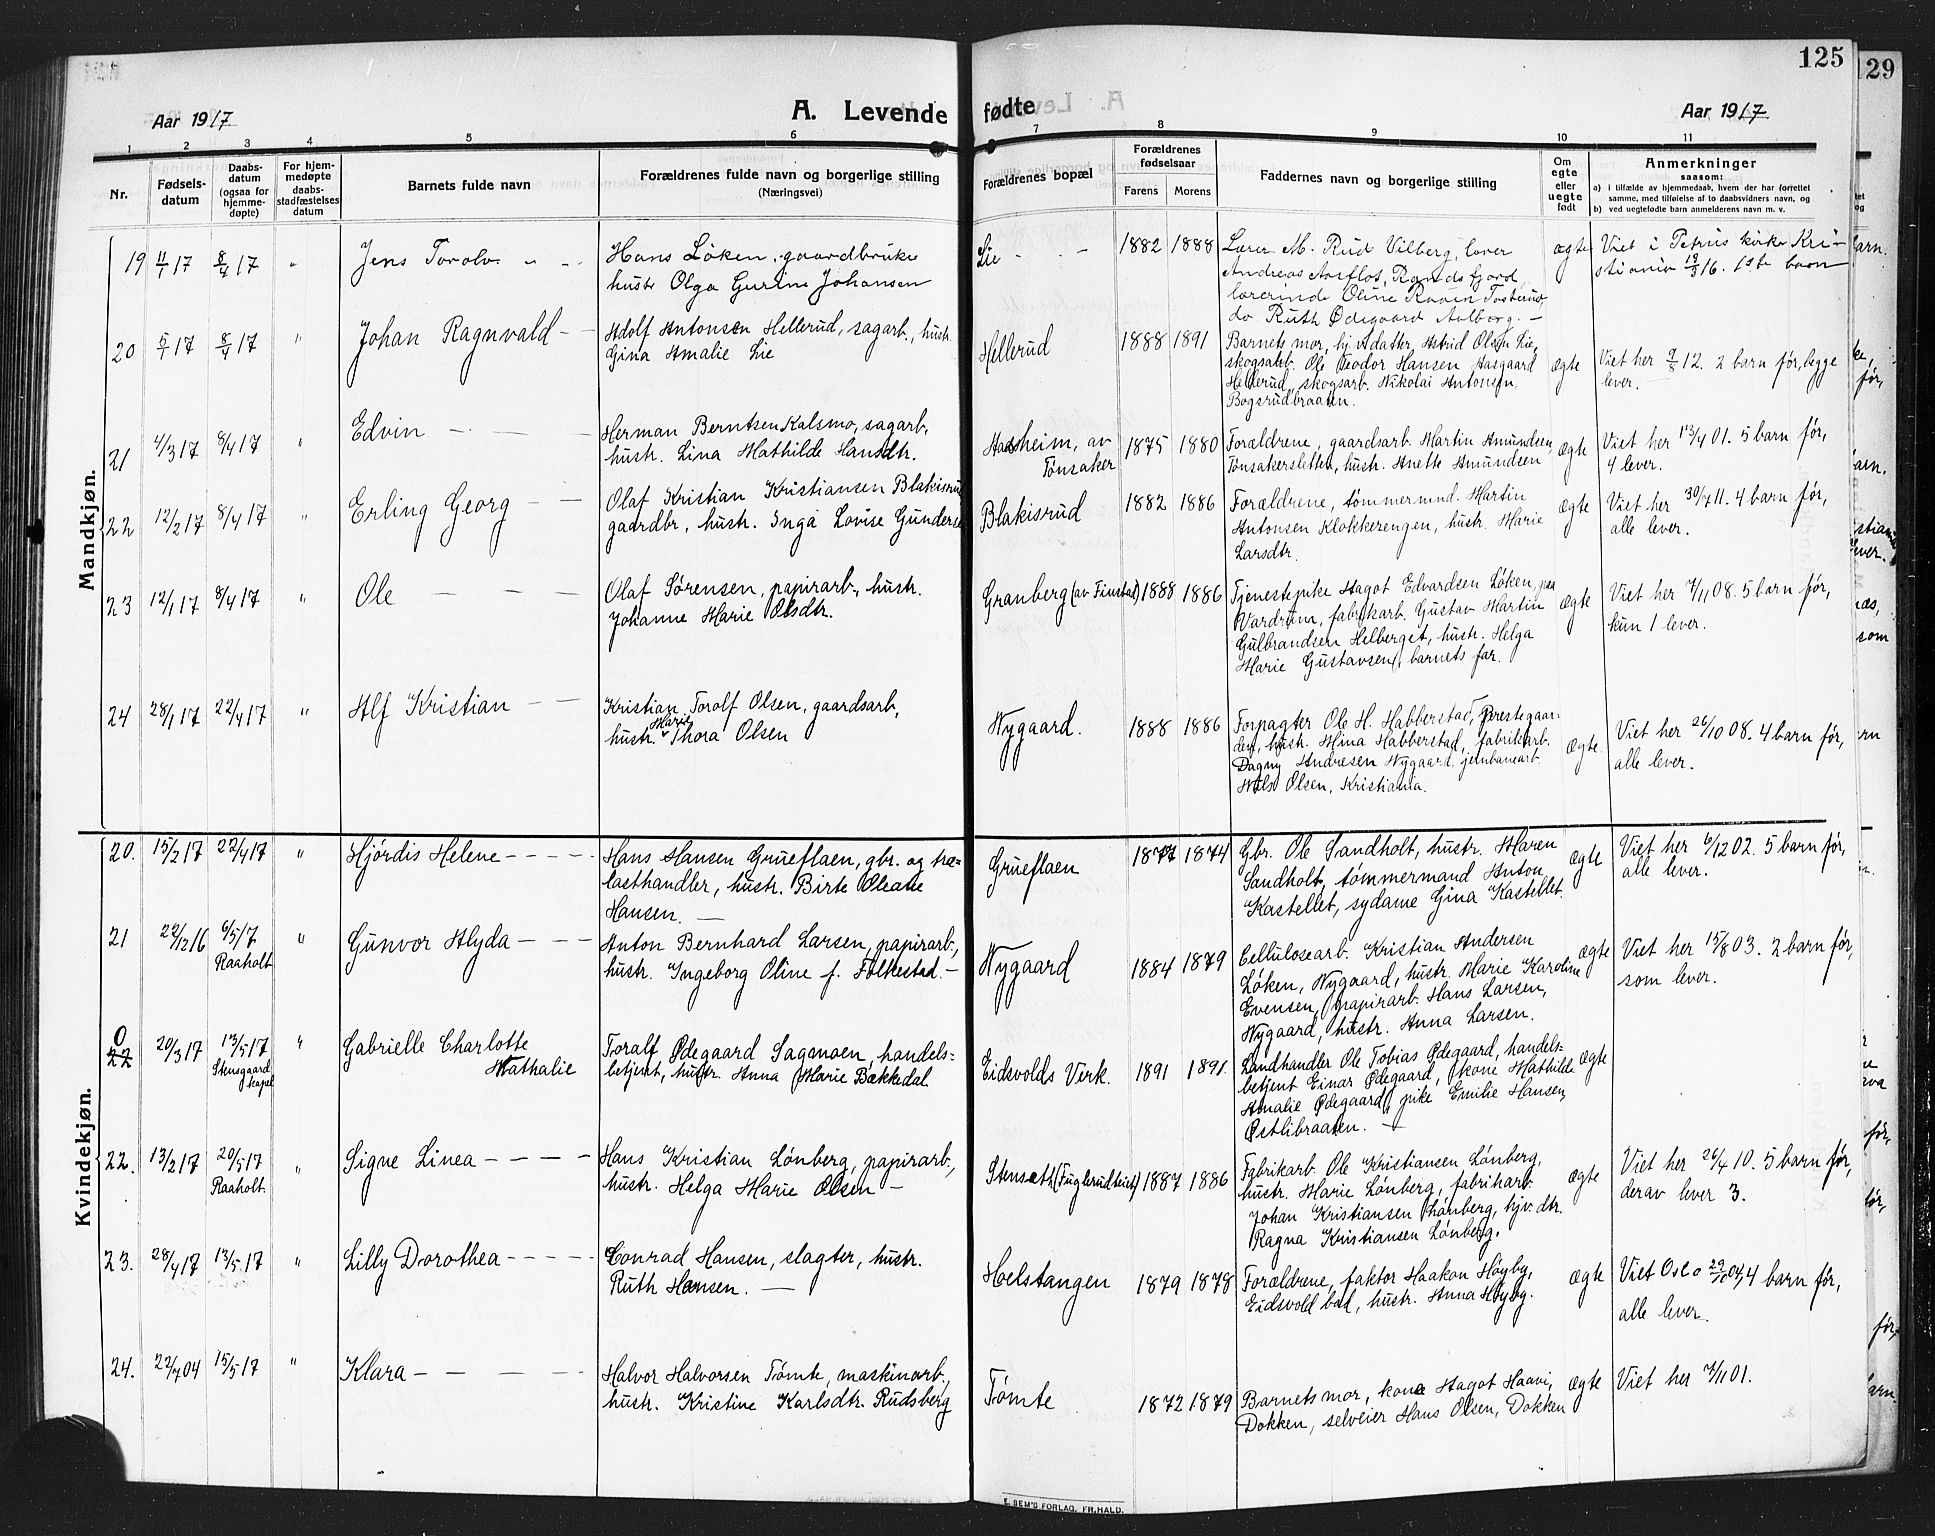 125
29
Aar 1917
A. Levende fødte
Aar 1917
1 2 3 4 5 6 7 8 9 10 11
Nr.
Fødsels-
datum
Daabs-
datum
(ogsaa for
hjemme-
døpte)
For hjem-
medøpte
daabs-
stadfæstelses
datum
Barnets fulde navn
Forældrenes fulde navn og borgerlige stilling
(Næringsvei)
Forældrenes bopæl
Forældrenes
fødselsaar
Farens Morens
Faddernes navn og borgerlige stilling
Om
egte
eller
uegte
født
Anmerkninger
saasom:
a) i tilfælde av hjemmedaab, hvem der har forrettet
samme, med tilføielse af to daabsvidners navn, og
b) ved uegtefødte barn anmelderens navn m. v.
Mandkjøn.
19 17 8/4 17 " Jens Torolv
Hans Løken, gaardbruker
hustr Olga Gurine Johansen
Lie - - 1882 1888
Lærer M. Rud Vilberg, lærer
Andreas Aarflot, Randsfjord,
lærerinde Oline Raaen Tosterud,
do Ruth Ødegaard Aalborg. -
ægte
Viet i Petrus kirke Kri-
stiania 18/3 16. 1ste barn
20 5/1 17 8/4 17 " Johan Ragnvald - -
Adolf Antonsen Hellerud, sagarb., hustr.
Gina Amalie Lie
Hellerud 1888 1891
Barnets mor, hj.v.datter, Astrid Olsen Lie,
skogsarb. Ole Teodor Hansen Aasgaard
Hellerud, skogsarb. Nikolai Antonsen,
Bogsrudbraaten.
ægte
Viet her 12. 2 barn før, begge
lever.
21 4/3 17 8/4 17 " Edvin - - -
Herman Berntsen Kalsmo, sagarb.,
hustr. Lina Mathilde Hansdtr.
Aasheim, av
Tønsaker
1875 1880
Forældrene, gaardsarb. Martin Amundsen,
Tønsakersletten, hustr. Anette Amundsen
ægte
Viet her 13/4 01. 5 barn før,
4 lever.
22 12/2 17 8/4 17 " Erling Georg - -
Olaf Kristian Kristiansen Blakisrud
gaardbr., hustr. Inga Lovise Gundersen
Blakisrud 1882 1886
Forældrene, tømmermnd. Martin
Antonsen Klokkerengen, hustr. Marie
Larsdtr.
ægte
Viet her 30/7 11. 4 barn før,
alle lever.
23 12/1 17 8/4 17 " Ole - - -
Olaf Sørensen, papirarb., hustr.
Johanne Marie Olsdtr.
Granberg (av Finstad) 1888 1886
Tjenestepike Aagot Edvardsen Løken, paa
Vardrum, fabrikarb. Gustav Martin
Gulbrandsen Helberget, hustr. Helga
Marie Gustavsen, barnets far.
ægte
Viet her 7/11 08. 5 barn før,
kun 1 lever.
24 28/1 17 22/4 17 " Alf Kristian - -
Kristian Toralf Olsen, gaardsarb.,
Marie
hustr. Thora Olsen
Nygaard. 1888 1886
Forpagter Ole H. Habberstad, Prestegaar-
den, hustr. Mina Habberstad, fabrikarb.
Dagny Andresen Nygaard, jernbanearb.
Nils Olsen, Kristiania.
ægte.
Viet her 26/10 08. 4 barn før,
alle lever.
Kvindekjøn.
20. 15/2 17 22/4 17 " Hjórdis Helene - - - -
Hans Hansen Grueflaen, gbr. og træ-
lasthandler, hustr. Birte Oleane
Hansen. -
Grueflaen 1877 1874
Gbr. Ole Sandholt, hustr. Maren
Sandholt, tømmermand Anton
Kastellet, sydame Gina Kastellet.
ægte
Viet her 6/12 02. 5 barn før,
alle lever.
21 22/12 16 6/5 17 " Gunvor Alyda - - -
Raaholt
Anton Bernhard Larsen, papirarb.,
hustr. Ingeborg Oline f. Folkestad. -
Nygaard 1884 1879
Cellulosearb. Kristian Andersen
Løken, Nygaard, hustr. Marie Karoline
Evensen, papirarb. Hans Larsen,
Nygaard, hustr. Anna Larsen.
ægte
Viet her 15/8 03. 2 barn før,
som lever.
0
22 20/3 17 13/5 17 " Gabrielle Charlotte
Stensgaard
kapel
Nathalie
Toralf Ødegaard Sagmoen, handels-
betjent, hustr. Anna Marie Bækkedal
Eidsvolds Verk. 1891 1891.
Landhandler Ole Tobias Ødegaard, handels-
betjent Einar Ødegaard, kone Mathilde
Amalie Ødegaard, pike Emilie Hansen,
Østlibraaten. -
ægte
22. 13/2 17 20/5 17 " Signe Linea - - - -
Raaholt
Hans Kristian Lónberg, papirarb.,
hustr. Helga Marie Olsen -
Stensæth (Fuglerudteiet) 1887 1886
Fabrikarb. Ole Kristiansen Lónberg,
hustr. Marie Lónberg, fabrikarb.
Johan Kristiansen Lónberg, hjv. dtr.
Ragna Kristiansen Lónberg.
ægte
Viet her 26/4 10. 5 barn før,
derav lever 3.
23. 28/4 17 13/5 17 " Lilly Dorothea - - - -
Conrad Hansen, slagter, hustr.
Ruth Hansen. -
Holstangen 1879 1878
Forældrene, faktor Haakon Høyby,
Eidsvold bad, hustr. Anna Høyby.
ægte
Viet Oslo 29/10 04, 4 barn før,
alle lever.
24. 22/7 04 15/5 17 " Klara - - - -
Halvor Halvorsen Tømte, maskinarb.,
hustr. Kristine Karlsdtr. Rudsberg
Tómte 1872 1879
Barnets mor, kone Aagot Haavi,
Dokken, selveier Hans Olsen, Dokken
ægte
Viet her 7/11 01.
E. SEM'S FORLAG, FR.HALD.